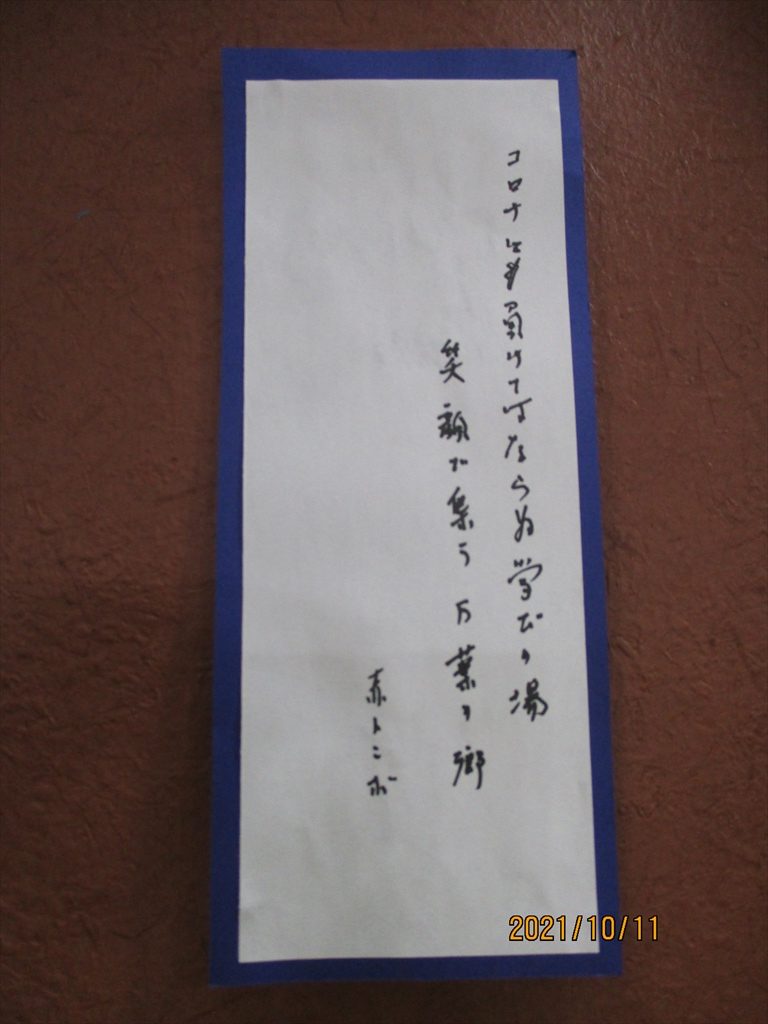 コロナに負けてはならぬ学びの場
笑顔が集う万葉の郷
赤トンボ
2021/10/11